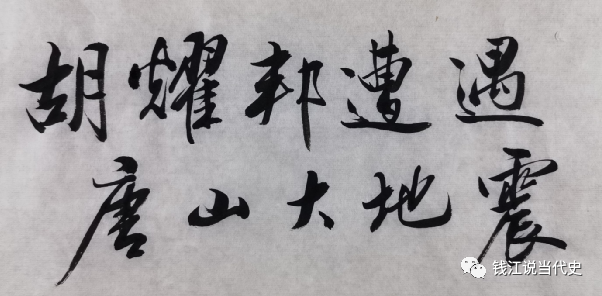 胡耀邦遭遇
唐山大地震
钱江说当代史